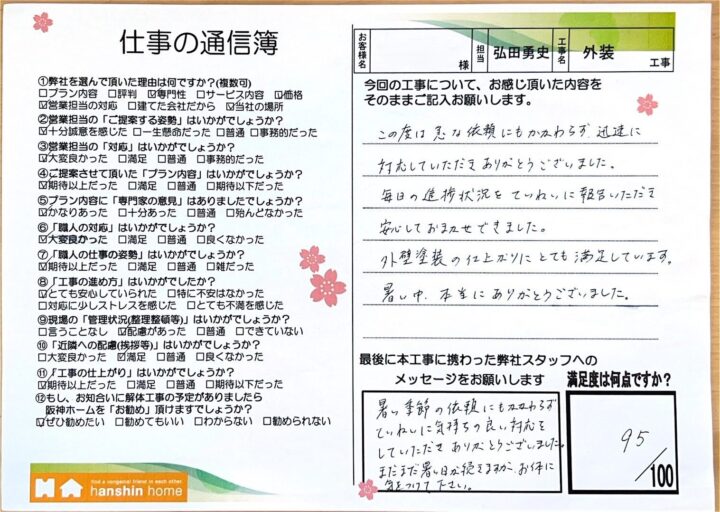 仕事の通信簿
①弊社を選んで頂いた理由は何ですか?(複数可)
□プラン内容 □評判 ☑専門性 □サービス内容 ☑価格
☑営業担当の対応 □建てた会社だから ☑当社の場所
②営業担当の「ご提案する姿勢」はいかがでしょうか?
☑十分誠意を感じた □一生懸命だった □普通 □事務的だった
③営業担当の「対応」はいかがでしょうか?
☑大変良かった □満足 □普通 □事務的だった
④ご提案させて頂いた「プラン内容」はいかがでしょうか?
☑期待以上だった □満足 □普通 □期待以下だった
⑤プラン内容に「専門家の意見」はありましたでしょうか?
☑かなりあった □十分あった □普通 □殆んどなかった
⑥「職人の対応」はいかがでしょうか?
☑大変良かった □満足 □普通 □良くなかった
⑦「職人の仕事の姿勢」はいかがでしょうか?
☑期待以上だった □満足 □普通 □雑だった
⑧「工事の進め方」はいかがでしたか?
☑とても安心していられた □特に不安はなかった
□対応に少しストレスを感じた □とても不満を感じた
⑨現場の「管理状況(整理整頓等)」はいかがでしょうか?
□言うことなし ☑配慮があった □普通 □できていない
⑩「近隣への配慮(挨拶等)」はいかがでしょうか?
□大変良かった ☑満足 □普通 □良くなかった
⑪「工事の仕上がり」はいかがでしょうか?
☑期待以上だった □満足 □普通 □期待以下だった
⑫もし、お知合いに解体工事の予定がありましたら
阪神ホームを「お勧め」頂けますでしょうか?
☑ぜひ勧めたい □勧めてもいい □わからない □勧められない
find a congenial friend in each other
hanshin home
お客様名 様 担当 弘田勇史 工事名 外装 工事
今回の工事について、お感じ頂いた内容を
そのままご記入お願いします。
この度は急な依頼にもかかわらず 迅速に
対応していただき ありがとうございました。
毎日の進捗状況を ていねいに 報告いただき
安心して おまかせできました。
外壁塗装の仕上がりに とても 満足しています。
暑い中、本当に ありがとうございました。
最後に本工事に携わった弊社スタッフへの
メッセージをお願いします
暑い季節の依頼にもかかわらず
ていねいに気持ちの良い対応を
していただき ありがとうございました。
まだまだ暑い日が続きますが、お体に
気をつけて下さい。
満足度は何点ですか?
95
/100